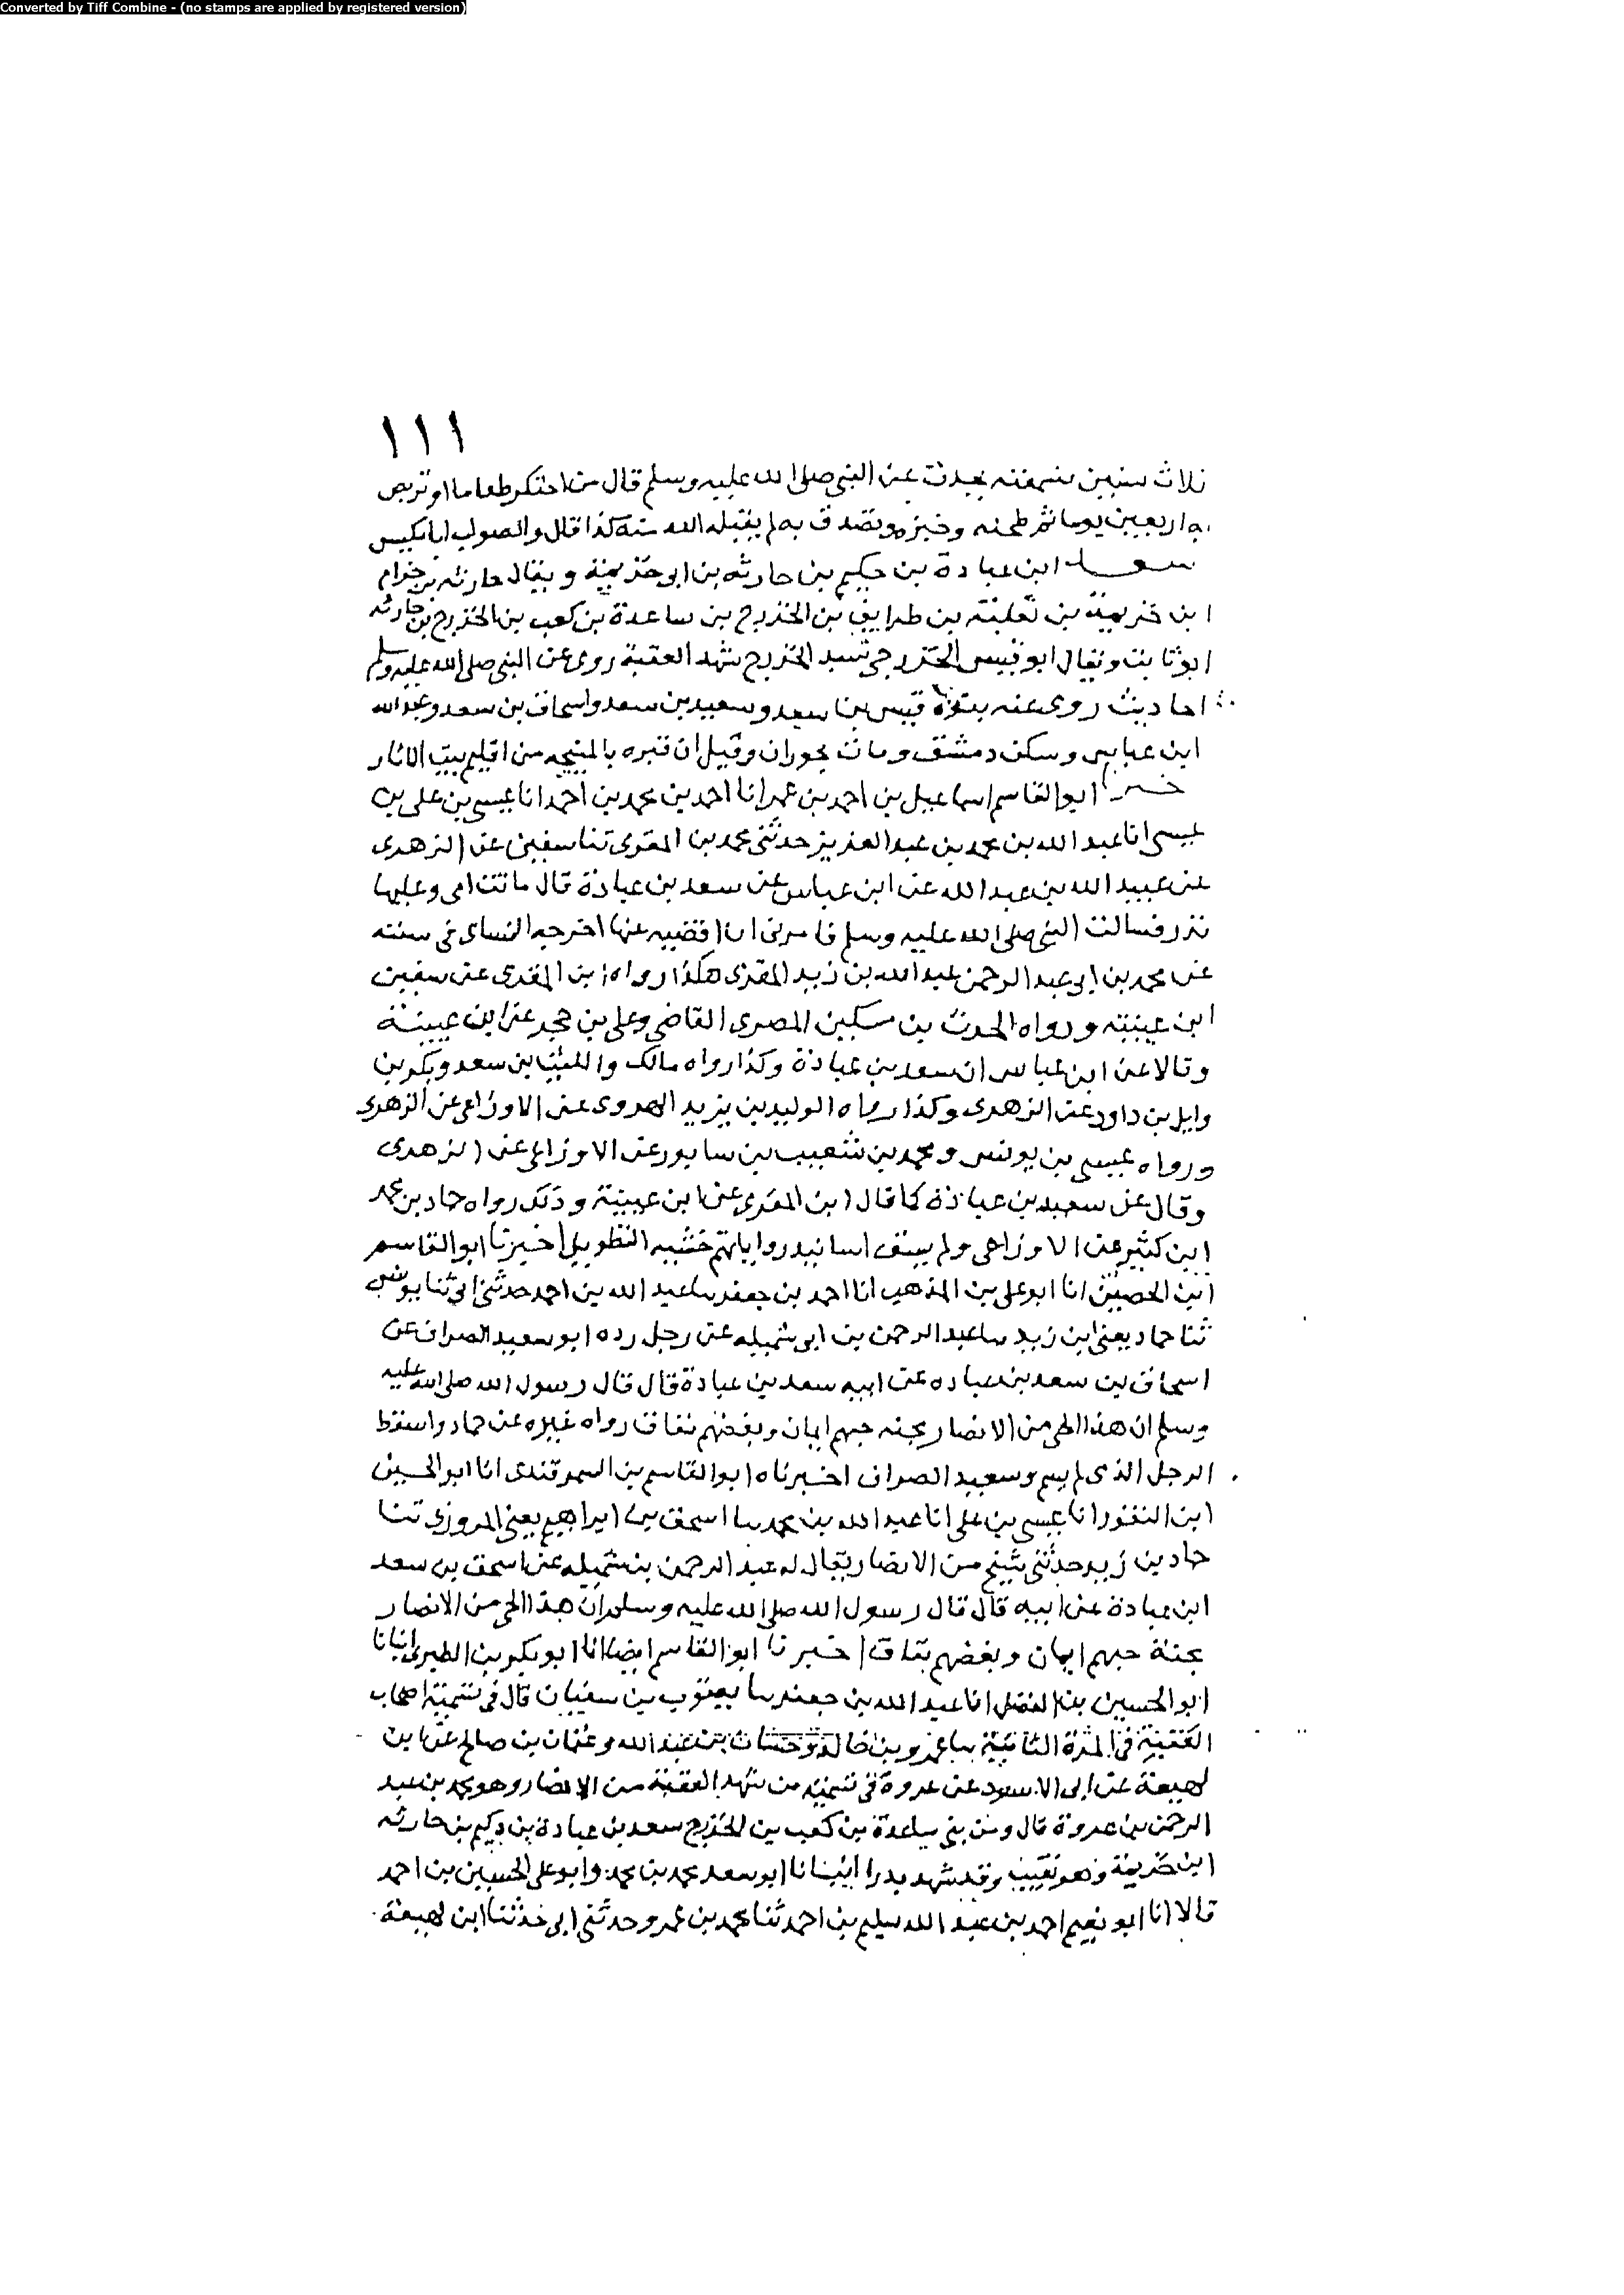 Converted by Tiff Combine - (no stamps are applied by registered version)
١١١
ثلاث سنين سمعته يحدث عن النبي صلى الله عليه وسلم قال من احتكر طعاما او تربص
به اربعين يوما ثم طحنه وخبزه وتصدق به لم يقبله الله منه كذا قال والصواب ابا بكيس
سعد ابن عبادة بن حكيم بن حارثه بن ابو حزيمة ويقال حارثه بن حزام
ابن خزيمة بن ثعلبة بن طرايف بن الخزرج بن ساعدة بن كعب بن الخزرج بن حارثه
ابو ثابت ويقال ابو قيس الخزرجي سيد الخزرج شهد العقبة روى عن النبي صلى الله عليه وسلم
احاديث روى عنه بنوه قيس بن سعد وسعيد بن سعد واسحاق بن سعد وعبد الله
ابن عباس وسكن دمشق ومات بحوران وقيل ان قبره بالمنيحه من اقليم بيت الاثار
خبرنا ابو القاسم اسماعيل بن احمد بن عمر انا احمد بن محمد بن احمد انا عيسى بن على بن
عيسى انا عبد الله بن محمد بن عبد العزيز حدثنى محمد بن المقرى ثنا سفين عن الزهرى
عن عبيد الله بن عبد الله عن ابن عباس عن سعد بن عبادة قال ماتت امى وعليها
نذر فسالت النبي صلى الله عليه وسلم فامرنى ان اقضيه عنها اخرجه النساى فى سننه
عن محمد بن ابى عبد الرحمن عبد الله بن زيد المقرى هكذا رواه ابن المقرى عن سفين
ابن عيينه ورواه الحرث بن مسكين المصرى القاضي وعلى بن حجر عن ابن عيينة
وقالا عن ابن عباس ان سعد بن عبادة وكذا رواه مالك والليث بن سعد وبكر بن
وايل بن داود عن الزهرى وكذا رواه الوليد بن يزيد العدوى عن الاوزاعى عن الزهرى
ورواه عيسى بن يونس ومحمد بن شعيب بن سابور عن الاوزاعى عن الزهرى
وقال عن سعيد بن عبادة كما قال ابن المقرى عن ابن عيينة وذلك رواه حماد بن محمد
ابن كثير عن الاوزاعى ولم يسق اسانيد رواياتهم خشيه التطويل اخبرنا ابو القاسم
ابن الحصين انا ابو على بن المذهب انا احمد بن جعفر سا عبد الله بن احمد حدثنى ابى ثنا يونس
ثنا حماد يعنى ابن زيد سا عبد الرحمن بن ابى شميله عن رجل رده ابو سعيد الصراف عن
اسحاق بن سعد بن عباده عن ابيه سعد بن عبادة قال قال رسول الله صلى الله عليه
وسلم ان هذا الحي من الانصار محنه حبهم ايمان وبغضهم نفاق رواه غيره عن حماد واسقط
الرجل الذى لم يسم وسعيد الصراف اخبرناه ابو القاسم بن السمرقندى انا ابو الحسين
ابن النقور انا عيسى بن على انا عبد الله بن محمد سا اسحق بن ابراهيم يعنى المروزى ثنا
حماد بن زيد حدثنى شيخ من الانصار يقال له عبد الرحمن بن شميله عن اسحق بن سعد
ابن عبادة عن ابيه قال قال رسول الله صلى الله عليه وسلم ان هذا الحى من الانصار
محنة حبهم ايمان وبغضهم نفاق اخبرنا ابو القاسم ايضا انا ابو بكر بن الطبرى انبانا
ابو الحسين بن الفضل انا عبد الله بن جعفر سا يعقوب بن سفيان قال فى تسمية اصحاب
العقبة فى المرة الثانية سا عمرو بن خالد وحسان بن عبد الله وعثمان بن صالح عن ابن
لهيعة عن ابى الاسود عن عروة فى تسميه من شهد العقبة من الانصار وهو محمد بن عبد
الرحمن بن عروة قال ومن بنى ساعدة بن كعب بن الخزرج سعد بن عبادة بن دكيم بن حارثه
ابن خزيمة وهو نقيب وقد شهد بدرا انبانا ابو سعد محمد بن محمد وابو على الحسين بن احمد
قالا انا ابو نعيم احمد بن عبد الله سليم بن احمد ثنا محمد بن عمرو حدثنى ابى حدثنا ابن لهيعة